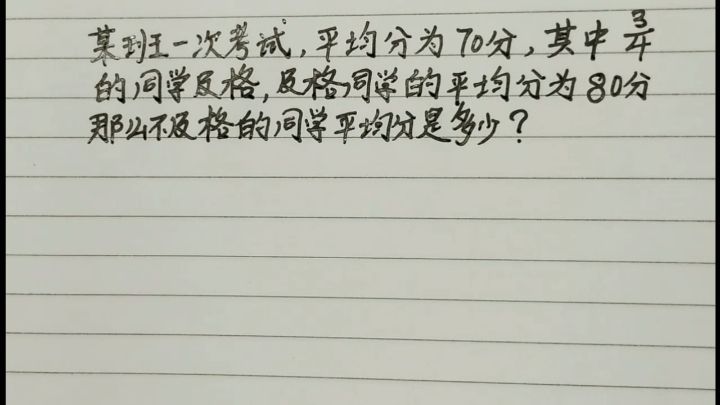 某班一次考试,平均分为70分,其中3/4
的同学及格,及格同学的平均分为80分
那么不及格的同学平均分是多少?